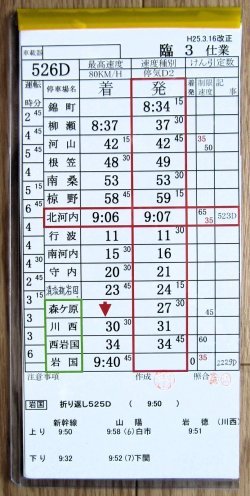 H25.3.16改正
車載器 臨 3 仕業
526D 最高速度 80KM/H 速度種別 停気D2 けん引定数
運転時分 停車場名 着 発 着発 制限速度 記事
錦町 8:34 15
2 45 柳瀬 8:37 37 30
4 45 河山 42 42 45 35 50
6 根笠 48 49
4 30 南桑 53 53 30
5 椋野 58 45 59 15
6 45 北河内 9:06 9:07 65 35 523D
4 行波 11 11 30
4 南河内 15 30 16
4 守内 20 21
2 45 清流新岩国 23 45 24 15
3 森ケ原 27 30
3 川西 30 30 31 60
3 西岩国 34 34 45 45
6 岩国 9:40 45 0 35 2229D
注意事項 作成 照合
岩国 折り返し525D ( 9:50 )
新幹線 山陽 岩徳 (川西)
上り 9:50 9:58 (6)白市 9:51
下り 9:32 9:52 (7)下関